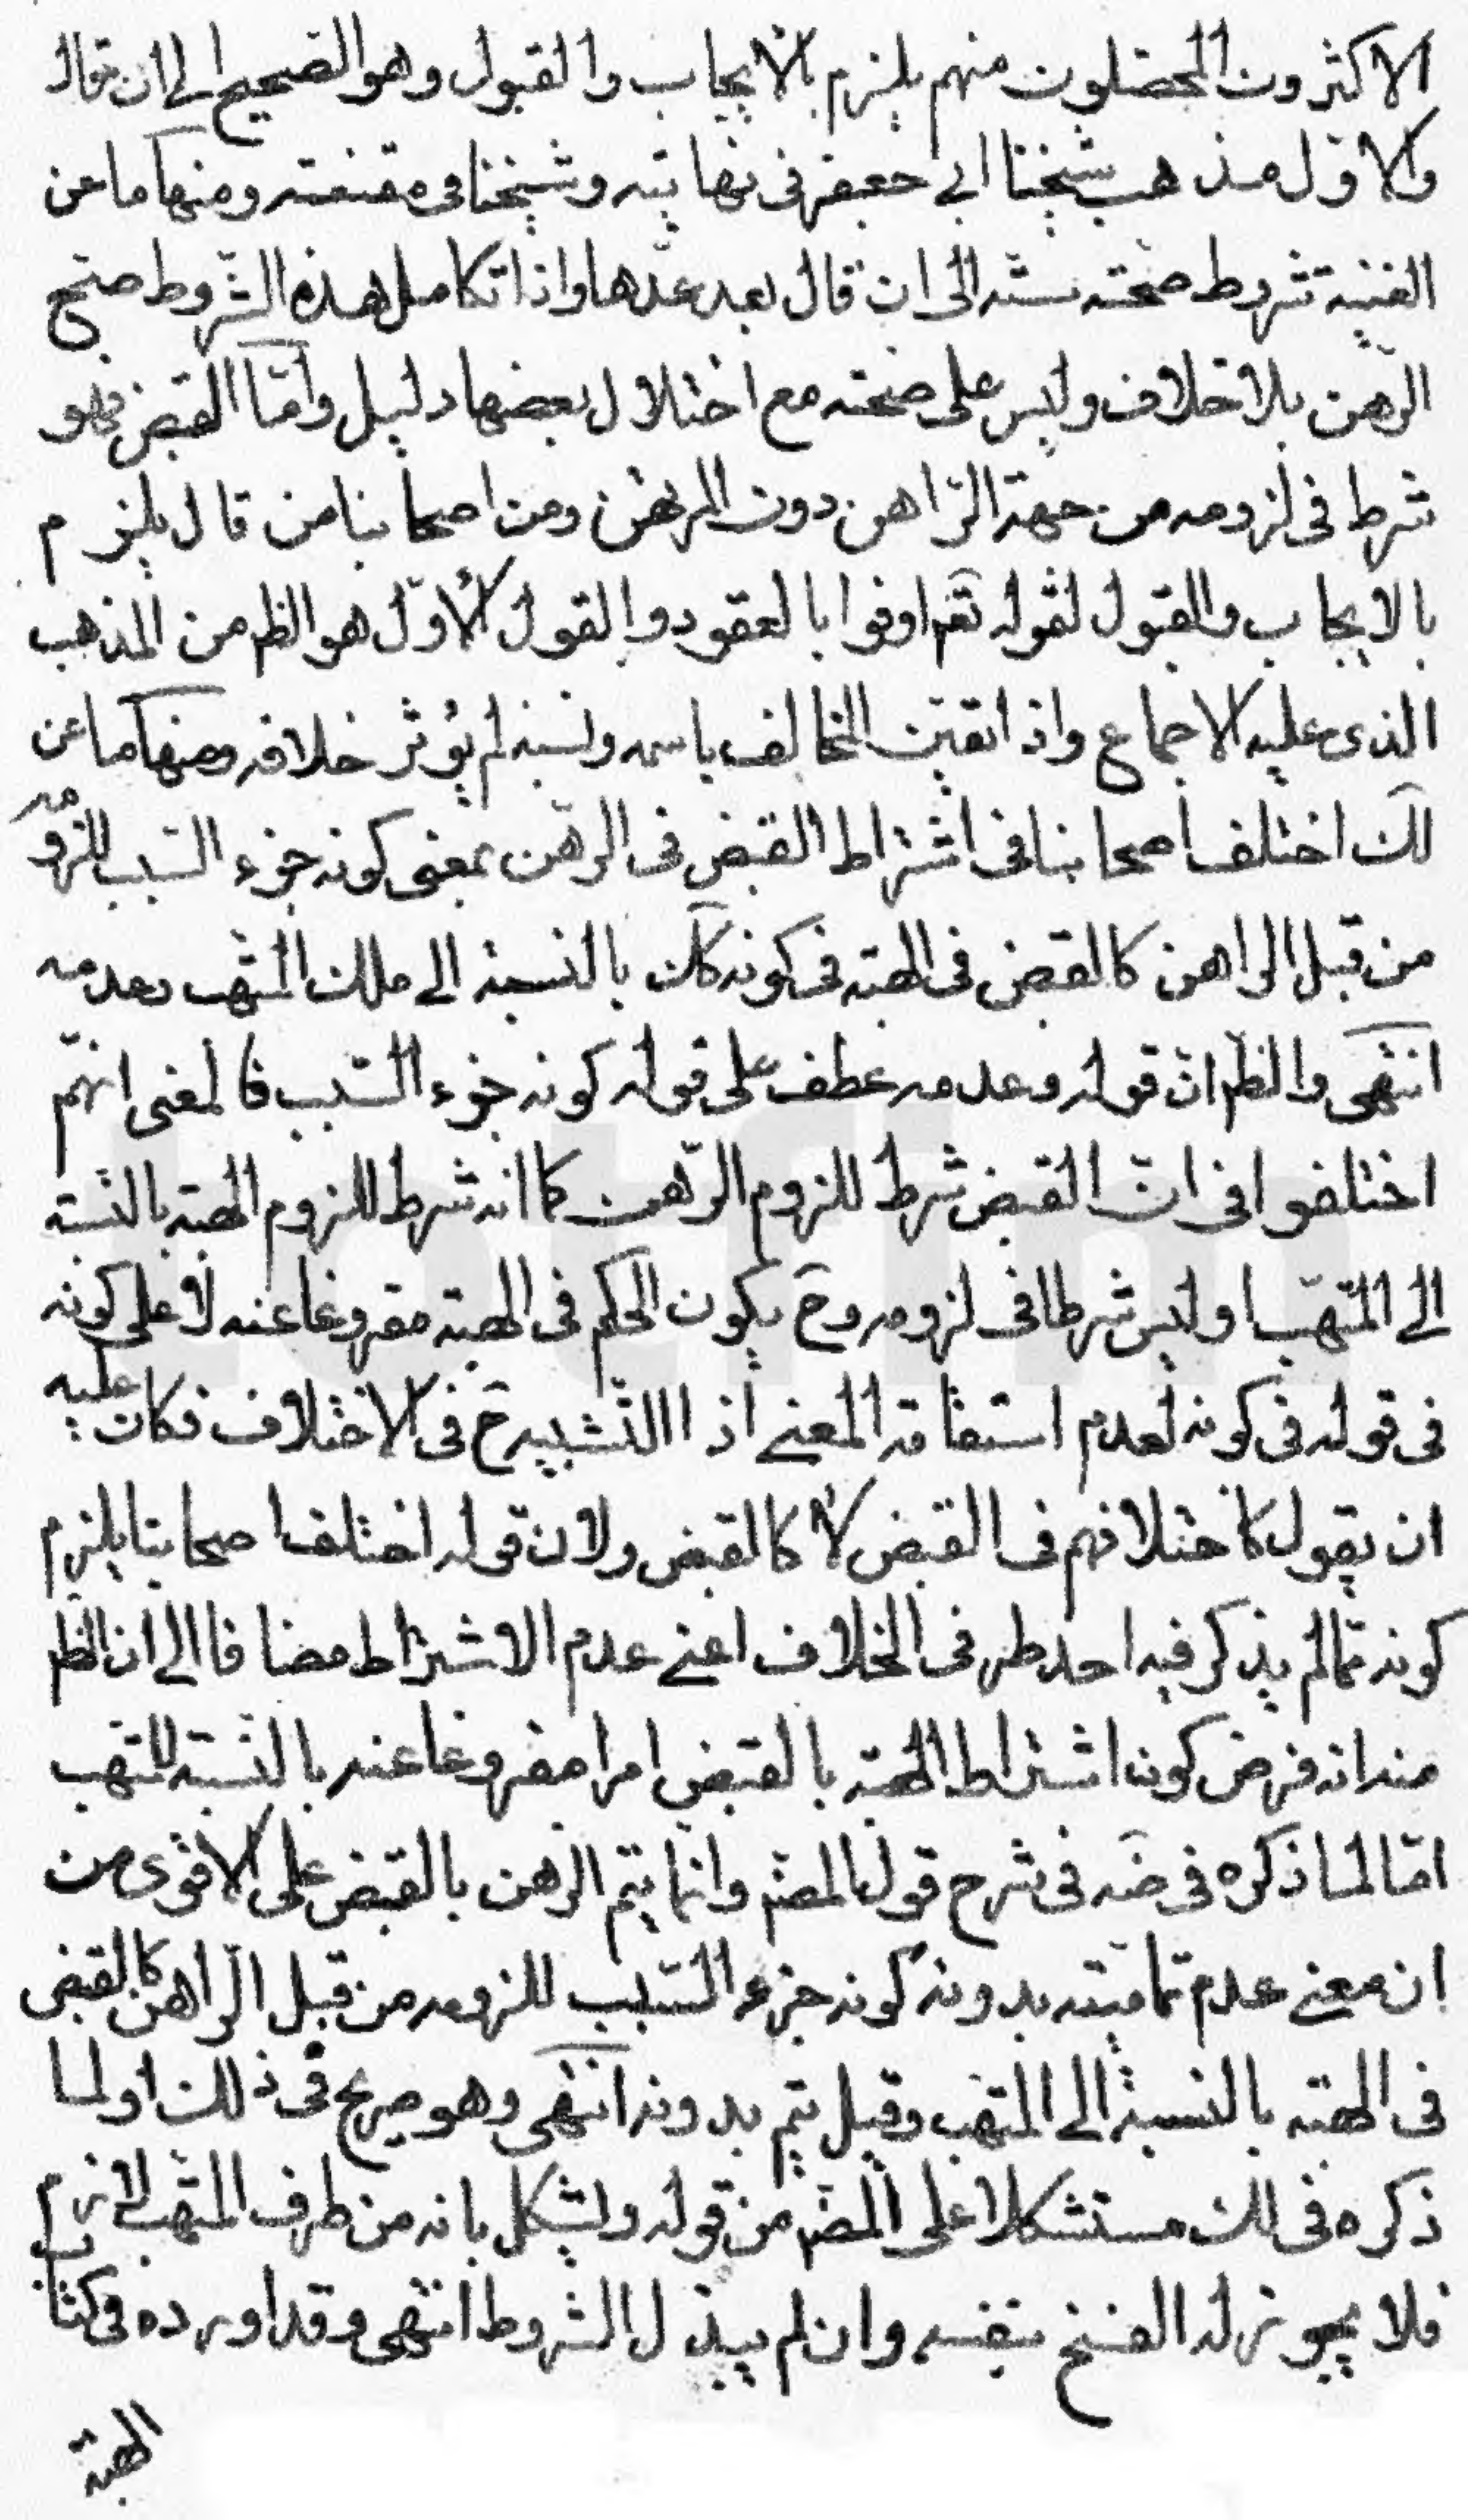 الاكثرون المحصّلون منهم يلزم بالايجاب والقبول وهو الصحيح الى ان قال
والاوّل مذهب شيخنا ابي جعفر في نهايته وشيخنا في مقنعته ومنها ما عن
الغنية شروط صحّته ستّة الى ان قال بعد عدّها واذا تكامل هذه الشّروط صحّ
الرّهن بلا خلاف وليس على صحّته مع اختلال بعضها دليل وامّا القبض فهو
شرط في لزومه من جهة الرّاهن دون المرتهن ومن اصحابنا من قال يلزم
بالايجاب والقبول لقوله تعم اوفوا بالعقود والقول الاوّل هو الظم من المذهب
الذى عليه الاجماع واذا تعيّن المخالف باسمه ونسبه لم يؤثر خلافه ومنها ما عن
لك اختلف اصحابنا في اشتراط القبض في الرّهن بمعنى كونه جزء السّبب للزومه
من قبل الراهن كالقبض في الهبة في كونه كك بالنسبة الى ملك المتّهب وعدمه
انتهى والظم انّ قوله وعدمه عطف على قوله كونه جزء السّبب فالمعنى انهم
اختلفوا في انّ القبض شرط للزوم الرّهن كما انه شرط للزوم الهبة بالنّسبة
الى المتّهب او ليس شرطا في لزومه وح يكون الحكم في الهبة مفروغا عنه لا على كونه
في قوله في كونه لعدم استقامة المعنى اذ التّشبيه ح في الاختلاف فكان عليه
ان يقول كاختلافهم في القبض لا كالقبض ولان قوله اختلف اصحابنا يلزم
كونه ممّا لم يذكر فيه احد طرفى الخلاف اعنى عدم الاشتراط مضافا الى ان الظم
منه انه فرض كون اشتراط الهبة بالقبض امرا مفروغا عنه بالنّسبة للمتّهب
امّا لما ذكره في ضه في شرح قول المصم وانما يتم الرهن بالقبض على الاقوى من
ان معنى عدم تماميته بدونه كونه جزء السّبب للزومه من قبل الرّاهن كالقبض
في الهبة بالنسبة الى المتّهب وقيل يتم بدونه انتهى وهو صريح في ذلك او لما
ذكره في لك مستشكلا على المصم من قوله ويشكل بانه من طرف المتّهب لازم
فلا يجوز له الفسخ بنفسه وان لم يبذل الشروط انتهى وقد اورده في كتاب
الهبة